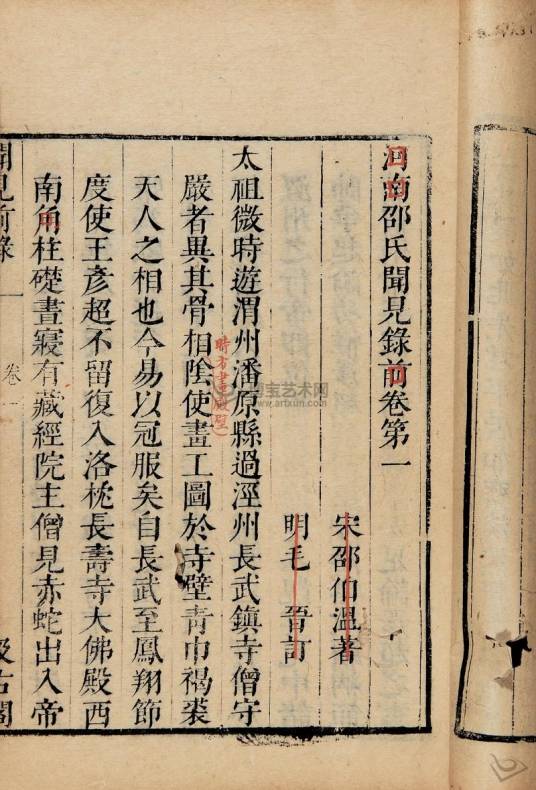 河南邵氏聞見錄前卷第一
宋邵伯溫著
明毛晉訂
太祖微時遊渭州潘原縣過涇州長武鎮寺僧守
嚴者異其骨相陰使畫工圖於寺壁青巾褐裘
時有書王殿壁
天人之相也今易以冠服矣自長武至鳳翔節
度使王彥超不留復入洛枕長壽寺大佛殿西
南角柱礎晝寢有藏經院主僧見赤蛇出入帝
聞見前錄
一
卷一
汲古閣
博宝艺术网
www.artxun.com